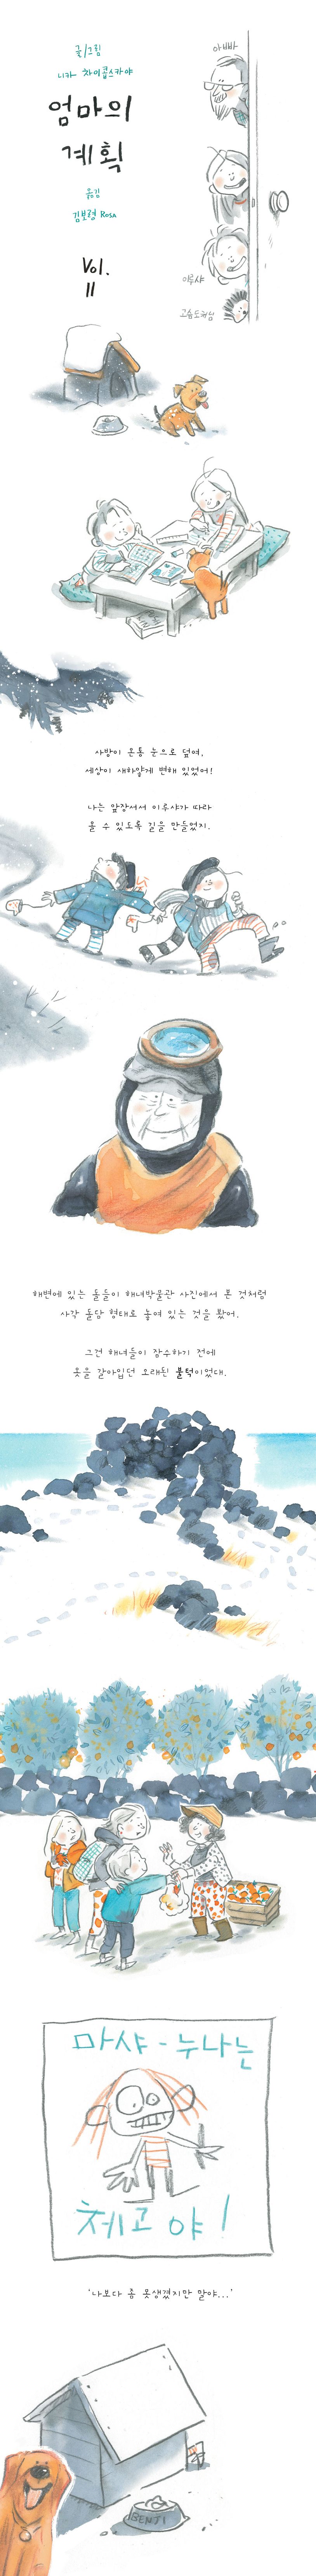 글/그림
니카 차이콥스카야
엄마의
계획
옮김
김보령 ROSA
Vol.
11
아빠
이루샤
고슴도치님
사방이 온통 눈으로 덮여,
세상이 새하얗게 변해 있었어!
나는 앞장서서 이루샤가 따라
올 수 있도록 길을 만들었지.
해변에 있는 돌들이 해녀박물관 사진에서 본 것처럼
사각 돌담 형태로 놓여 있는 것을 봤어.
그건 해녀들이 잠수하기 전에
옷을 갈아입던 오래된 불턱이었대.
마샤-누나는
체고야!
'나보다 좀 못생겼지만 말야...'
BENJI